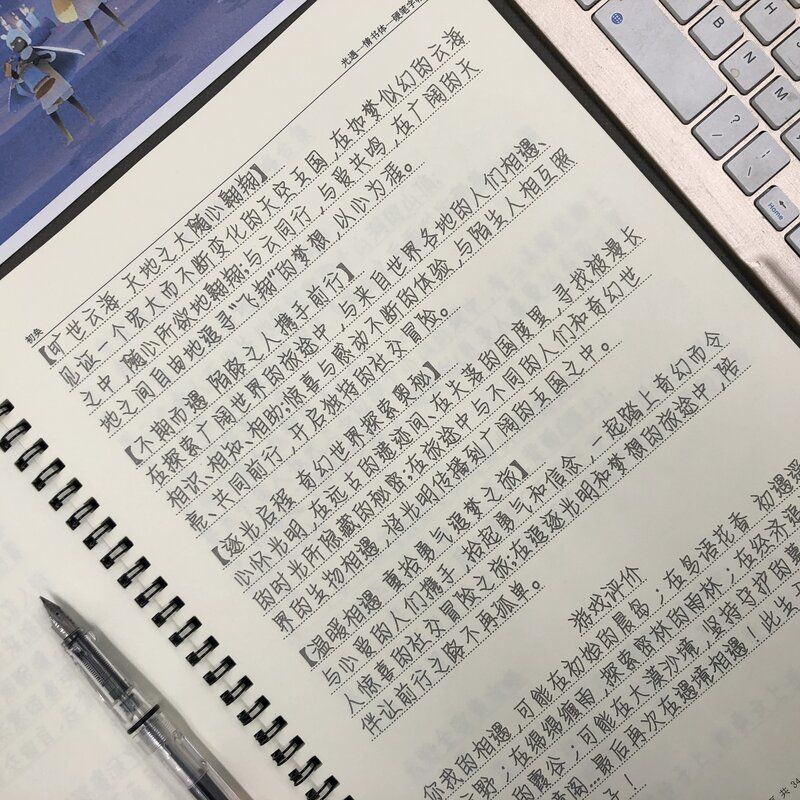 光遇—情书体—硬笔字
初央
【旷世云海 天地之大随心翱翔】
见证一个宏大而不断变化的天空王国,在如梦似幻的云海
之中,随心所欲地翱翔;与云同行,与爱共鸣,在广阔的天
地之间自由地追寻“飞翔”的梦想,以心为涯。
【不期而遇 陌路之人携手前行】
在探索广阔世界的旅途中,与来自世界各地的人们相遇、
相识、相拥、相助;惊喜与感动不断的体验,与陌生人相互照
亮、共同前行,开启独特的社交冒险。
【逐光启程 奇幻世界探索奥秘】
心怀光明,在远古的遗迹间、在失落的国度里,寻找被漫长
的时光所隐藏的秘密;在旅途中与不同的人们和奇幻世
界的生物相遇,将光明传播到广阔的王国之中。
【温暖相遇 重拾勇气追梦之旅】
与心爱的人们携手,拾起勇气和信念,一起踏上奇幻而令
人惊喜的社交冒险之旅;在追逐光明和梦想的旅途中,陪
伴让前行之路不再孤单。
游戏评价
你我的相遇,可能在初始的晨岛;在鸟语花香,初遇
云野;在绵绵缠雨,探索密林的雨林;在经济
的霞谷;可能在大漠沙境,坚持守护的
阁...最后再次在遇境相遇!此生
子!
共 34
B
N
M
?
/
Home